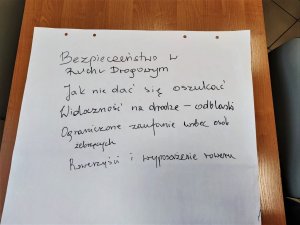 Bezpieczeństwo w
Ruchu Drogowym
Jak nie dać się oszukać
Widoczność na drodze – odblaski
Ograniczone zaufanie wobec osób
żebrzących
Rowerzyści i wyposażenie roweru